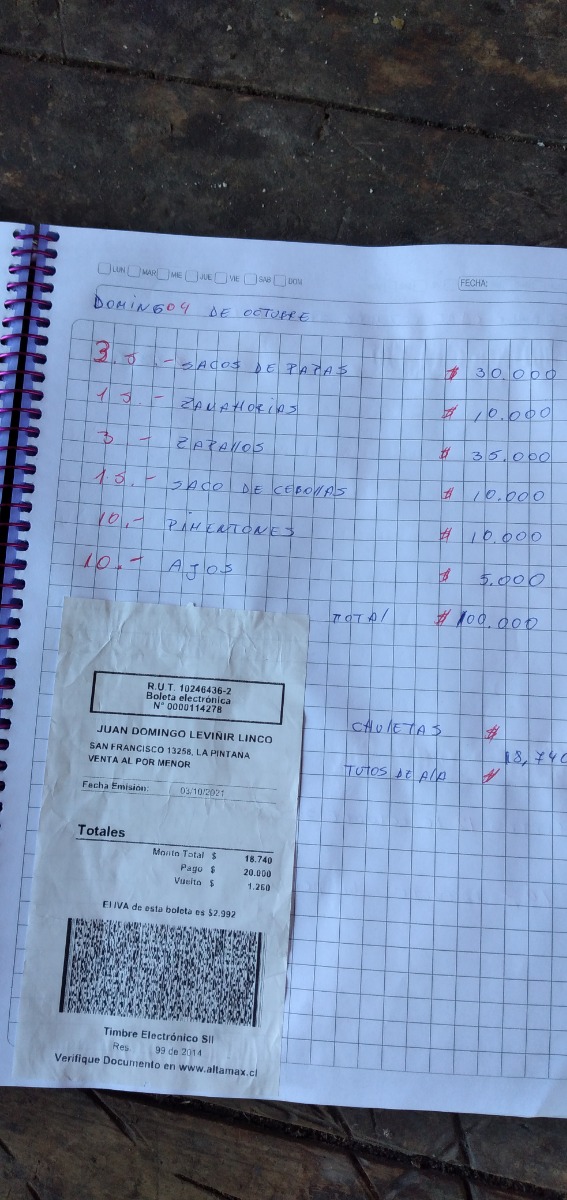 LUN MAR MIE JUE VIE SAB DOM
FECHA:
DOMINGO 04 DE OCTUBRE
3 S .- SACOS DE PAPAS $ 30.000
1 S .- ZANAHORIAS $ 10.000
3 - ZAPALLOS $ 35.000
1 S .- SACO DE CEBOLLAS $ 10.000
10.- PIMENTONES $ 10.000
10.- AJOS $ 5.000
TOTAL $ 100.000
CHULETAS $
18,740
TUTOS DE ALA $
R.U.T. 10246436-2
Boleta electrónica
N° 0000114278
JUAN DOMINGO LEVIÑIR LINCO
SAN FRANCISCO 13258, LA PINTANA
VENTA AL POR MENOR
Fecha Emisión: 03/10/2021
Totales
Monto Total $ 18.740
Pago $ 20.000
Vuelto $ 1.260
El IVA de esta boleta es $2.992
Timbre Electrónico SII
Res. 99 de 2014
Verifique Documento en www.altamax.cl